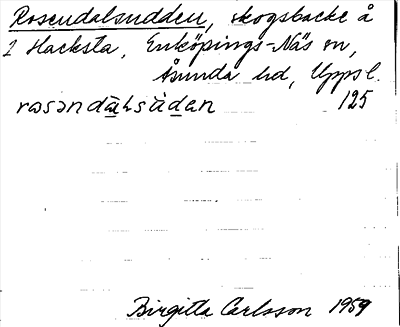 Rosendalsudden, skogsbacke å
2 Hacksta, Enköpings-Näs sn,
Åsunda hd, Uppsl.
rosəndɑlsudən 125
Birgitta Carlsson 1959